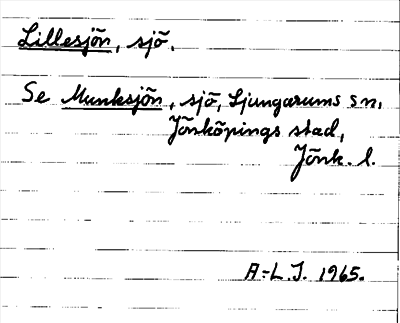 Lillesjön, sjö.
Se Munksjön, sjö, Ljungarums sn,
Jönköpings stad,
Jönk. l.
A-L.J. 1965.